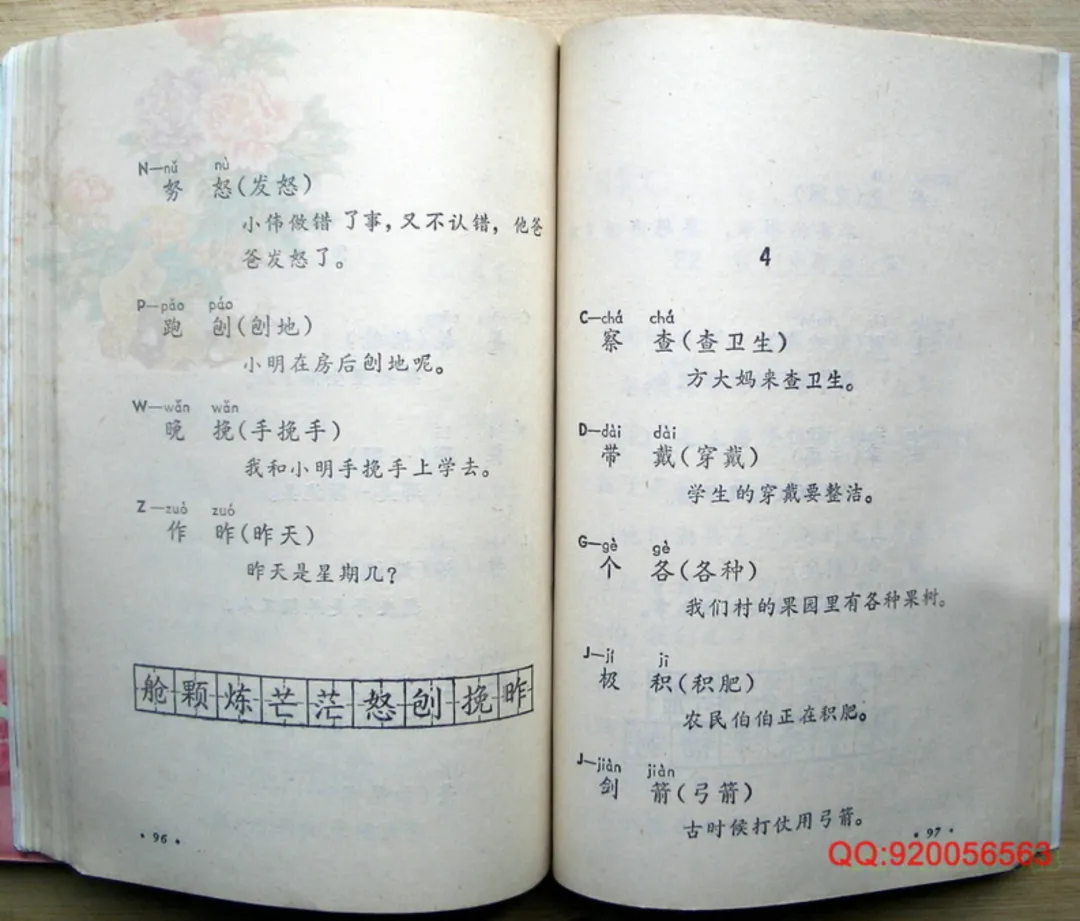 N—nǔ nù
努 怒(发怒)
小伟做错了事，又不认错，他爸
爸发怒了。
P—pǎo páo
跑 刨(刨地)
小明在房后刨地呢。
W—wǎn wǎn
晚 挽(手挽手)
我和小明手挽手上学去。
Z—zuò zuó
作 昨(昨天)
昨天是星期几？
舱颗炼芒茫怒刨挽昨
·96·
4
C—chá chá
察 查(查卫生)
方大妈来查卫生。
D—dài dài
带 戴(穿戴)
学生的穿戴要整洁。
G—gè gè
个 各(各种)
我们村的果园里有各种果树。
J—jí jī
极 积(积肥)
农民伯伯正在积肥。
J—jiàn jiàn
剑 箭(弓箭)
古时候打仗用弓箭。
·97·
QQ:920056563